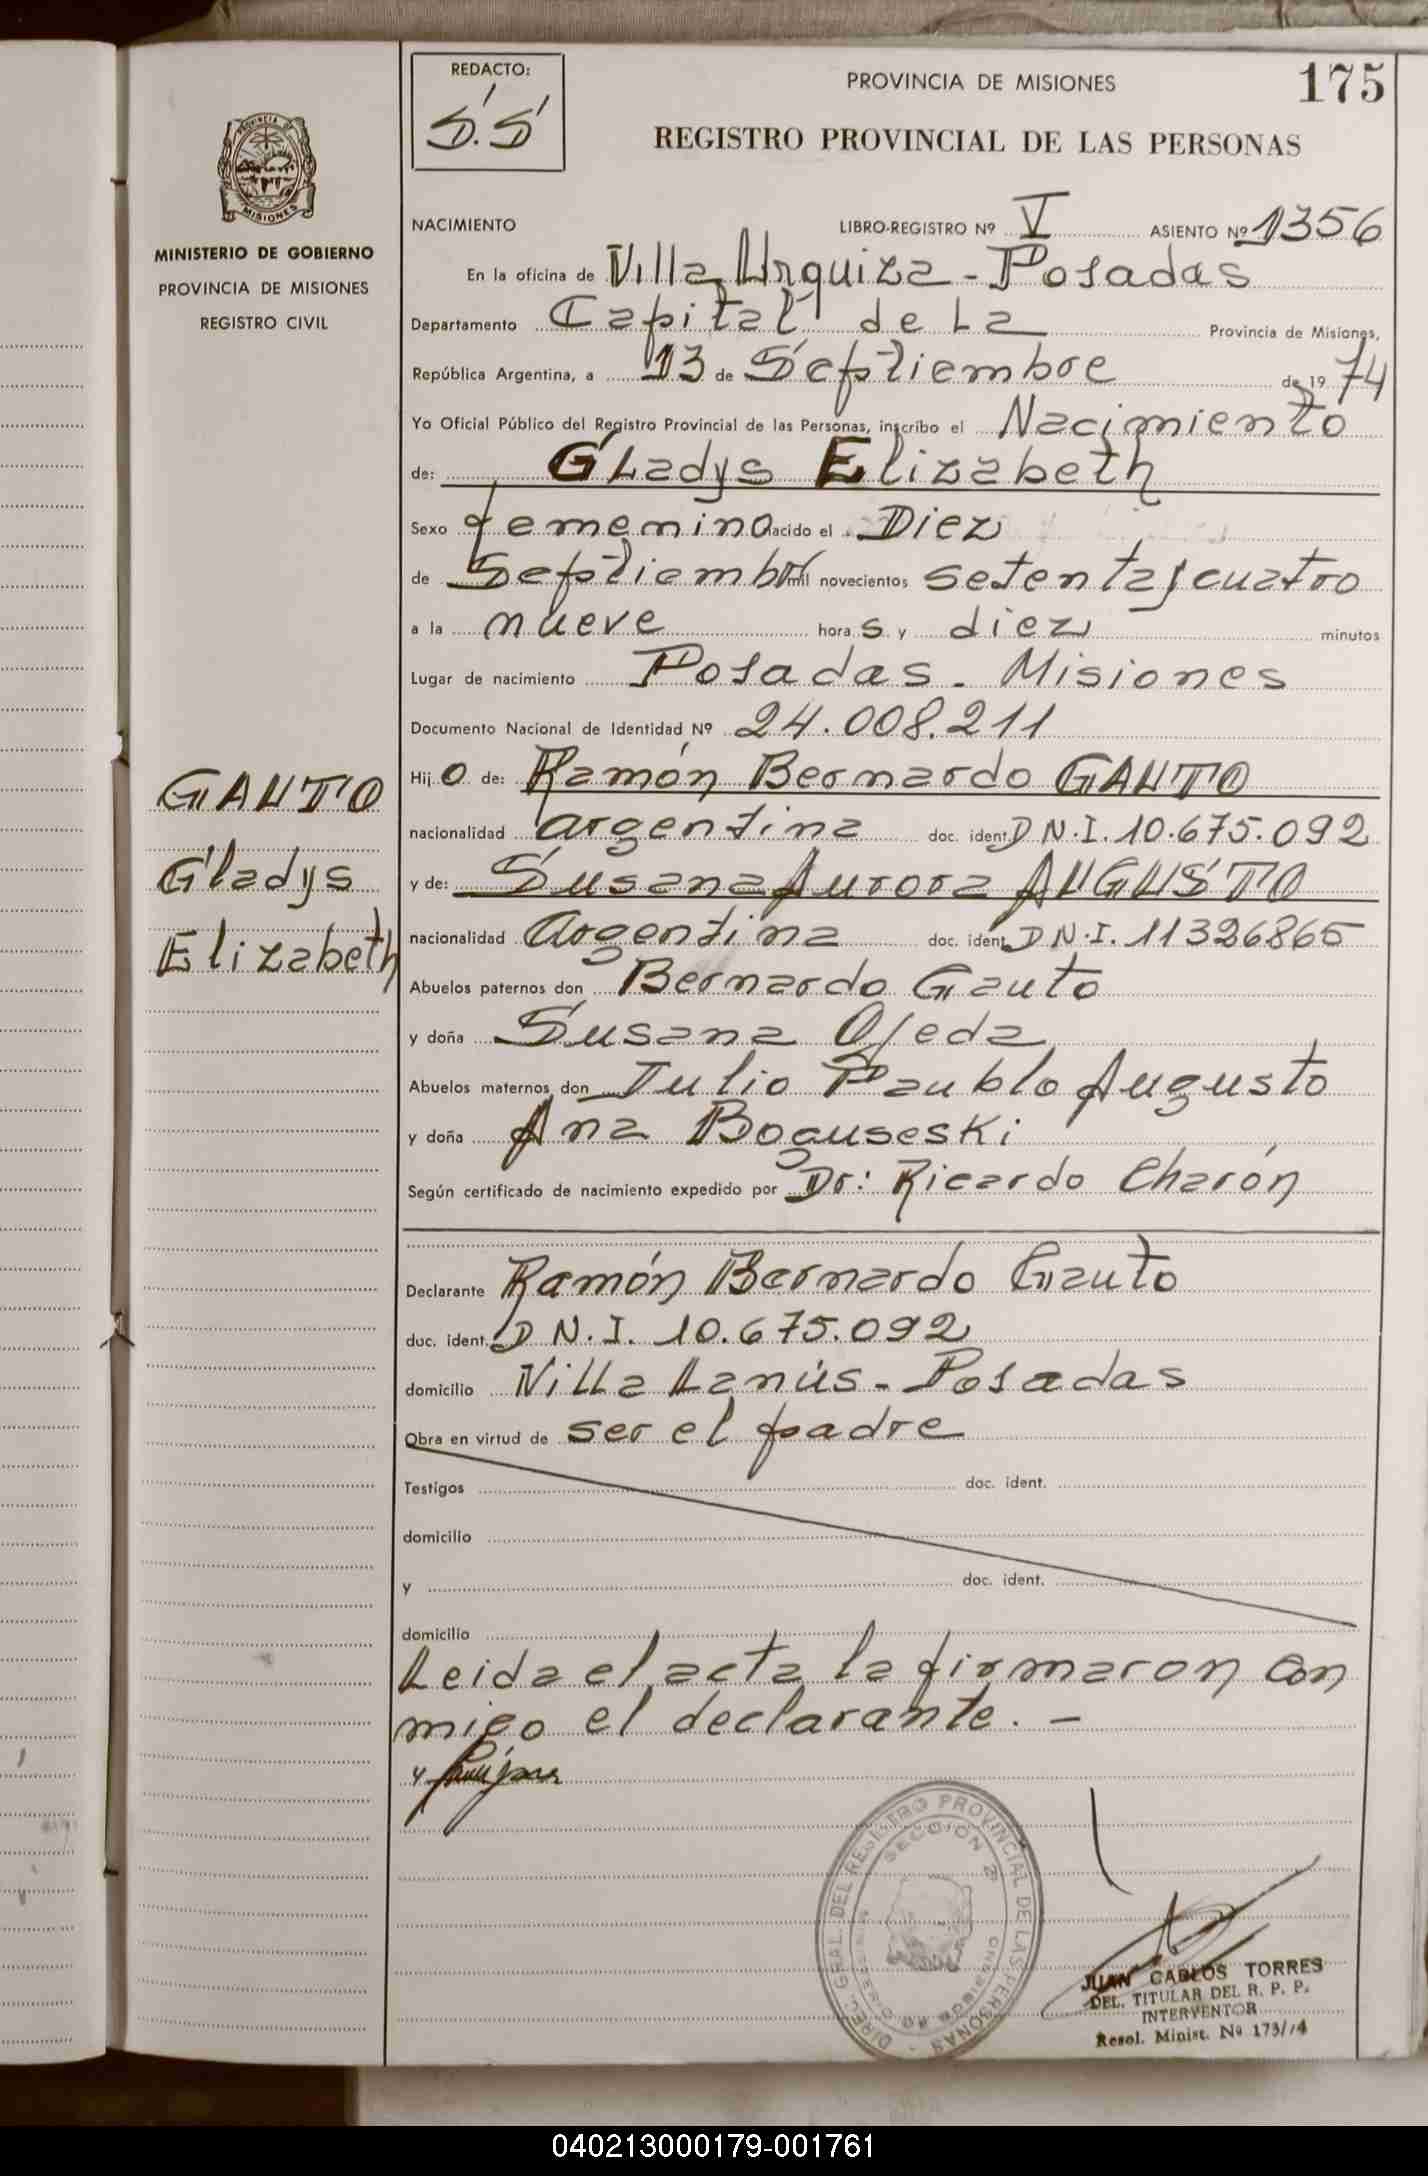 REDACTO:
S.S
PROVINCIA DE MISIONES
175
REGISTRO PROVINCIAL DE LAS PERSONAS
MISIONES
MINISTERIO DE GOBIERNO
PROVINCIA DE MISIONES
REGISTRO CIVIL
NACIMIENTO LIBRO-REGISTRO Nº V ASIENTO Nº 1356
En la oficina de Villa Urquiza - Posadas
Departamento Capital de La Provincia de Misiones,
República Argentina, a 13 de Septiembre de 19 74
Yo Oficial Público del Registro Provincial de las Personas, inscribo el Nacimiento
de: Gladys Elizabeth
Sexo femenino nacido el Diez
de Septiembre mil novecientos setenta y cuatro
a la nueve hora s y diez minutos
Lugar de nacimiento Posadas - Misiones
Documento Nacional de Identidad Nº 24.008.211
Hij o de: Ramón Bernardo GAUTO
nacionalidad argentina doc. ident. D N.I. 10.675.092
y de: Susana Aurora AUGUSTO
nacionalidad Argentina doc. ident. D N.I. 11326865
Abuelos paternos don Bernardo Gauto
y doña Susana Ojeda
Abuelos maternos don Julio Paublo Augusto
y doña Ana Boguseski
Según certificado de nacimiento expedido por Dr: Ricardo Charón
GAUTO
Gladys
Elizabeth
Declarante Ramón Bernardo Gauto
doc. ident. D N.I. 10.675.092
domicilio Villa Lanús - Posadas
Obra en virtud de ser el padre
Testigos doc. ident.
domicilio
y doc. ident.
domicilio
Leida el acta la firmaron con
migo el declarante. -
DIREC. GRAL. DEL REGISTRO PROVINCIAL DE LAS PERSONAS
SECCION 2ª
JUAN CARLOS TORRES
DEL. TITULAR DEL R. P. P.
INTERVENTOR
Resol. Minist. Nº 173/74
040213000179-001761